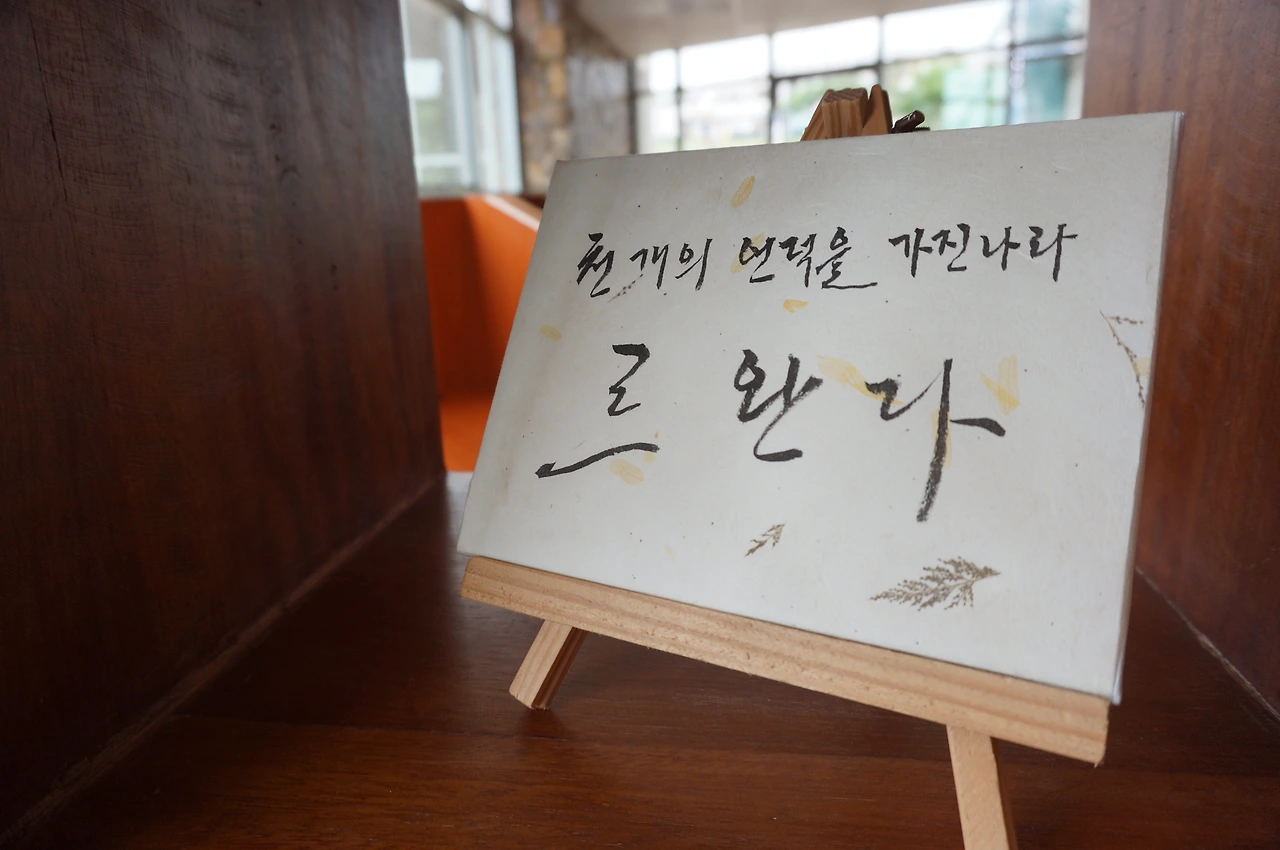 천 개의 언덕을 가진나라
르완다